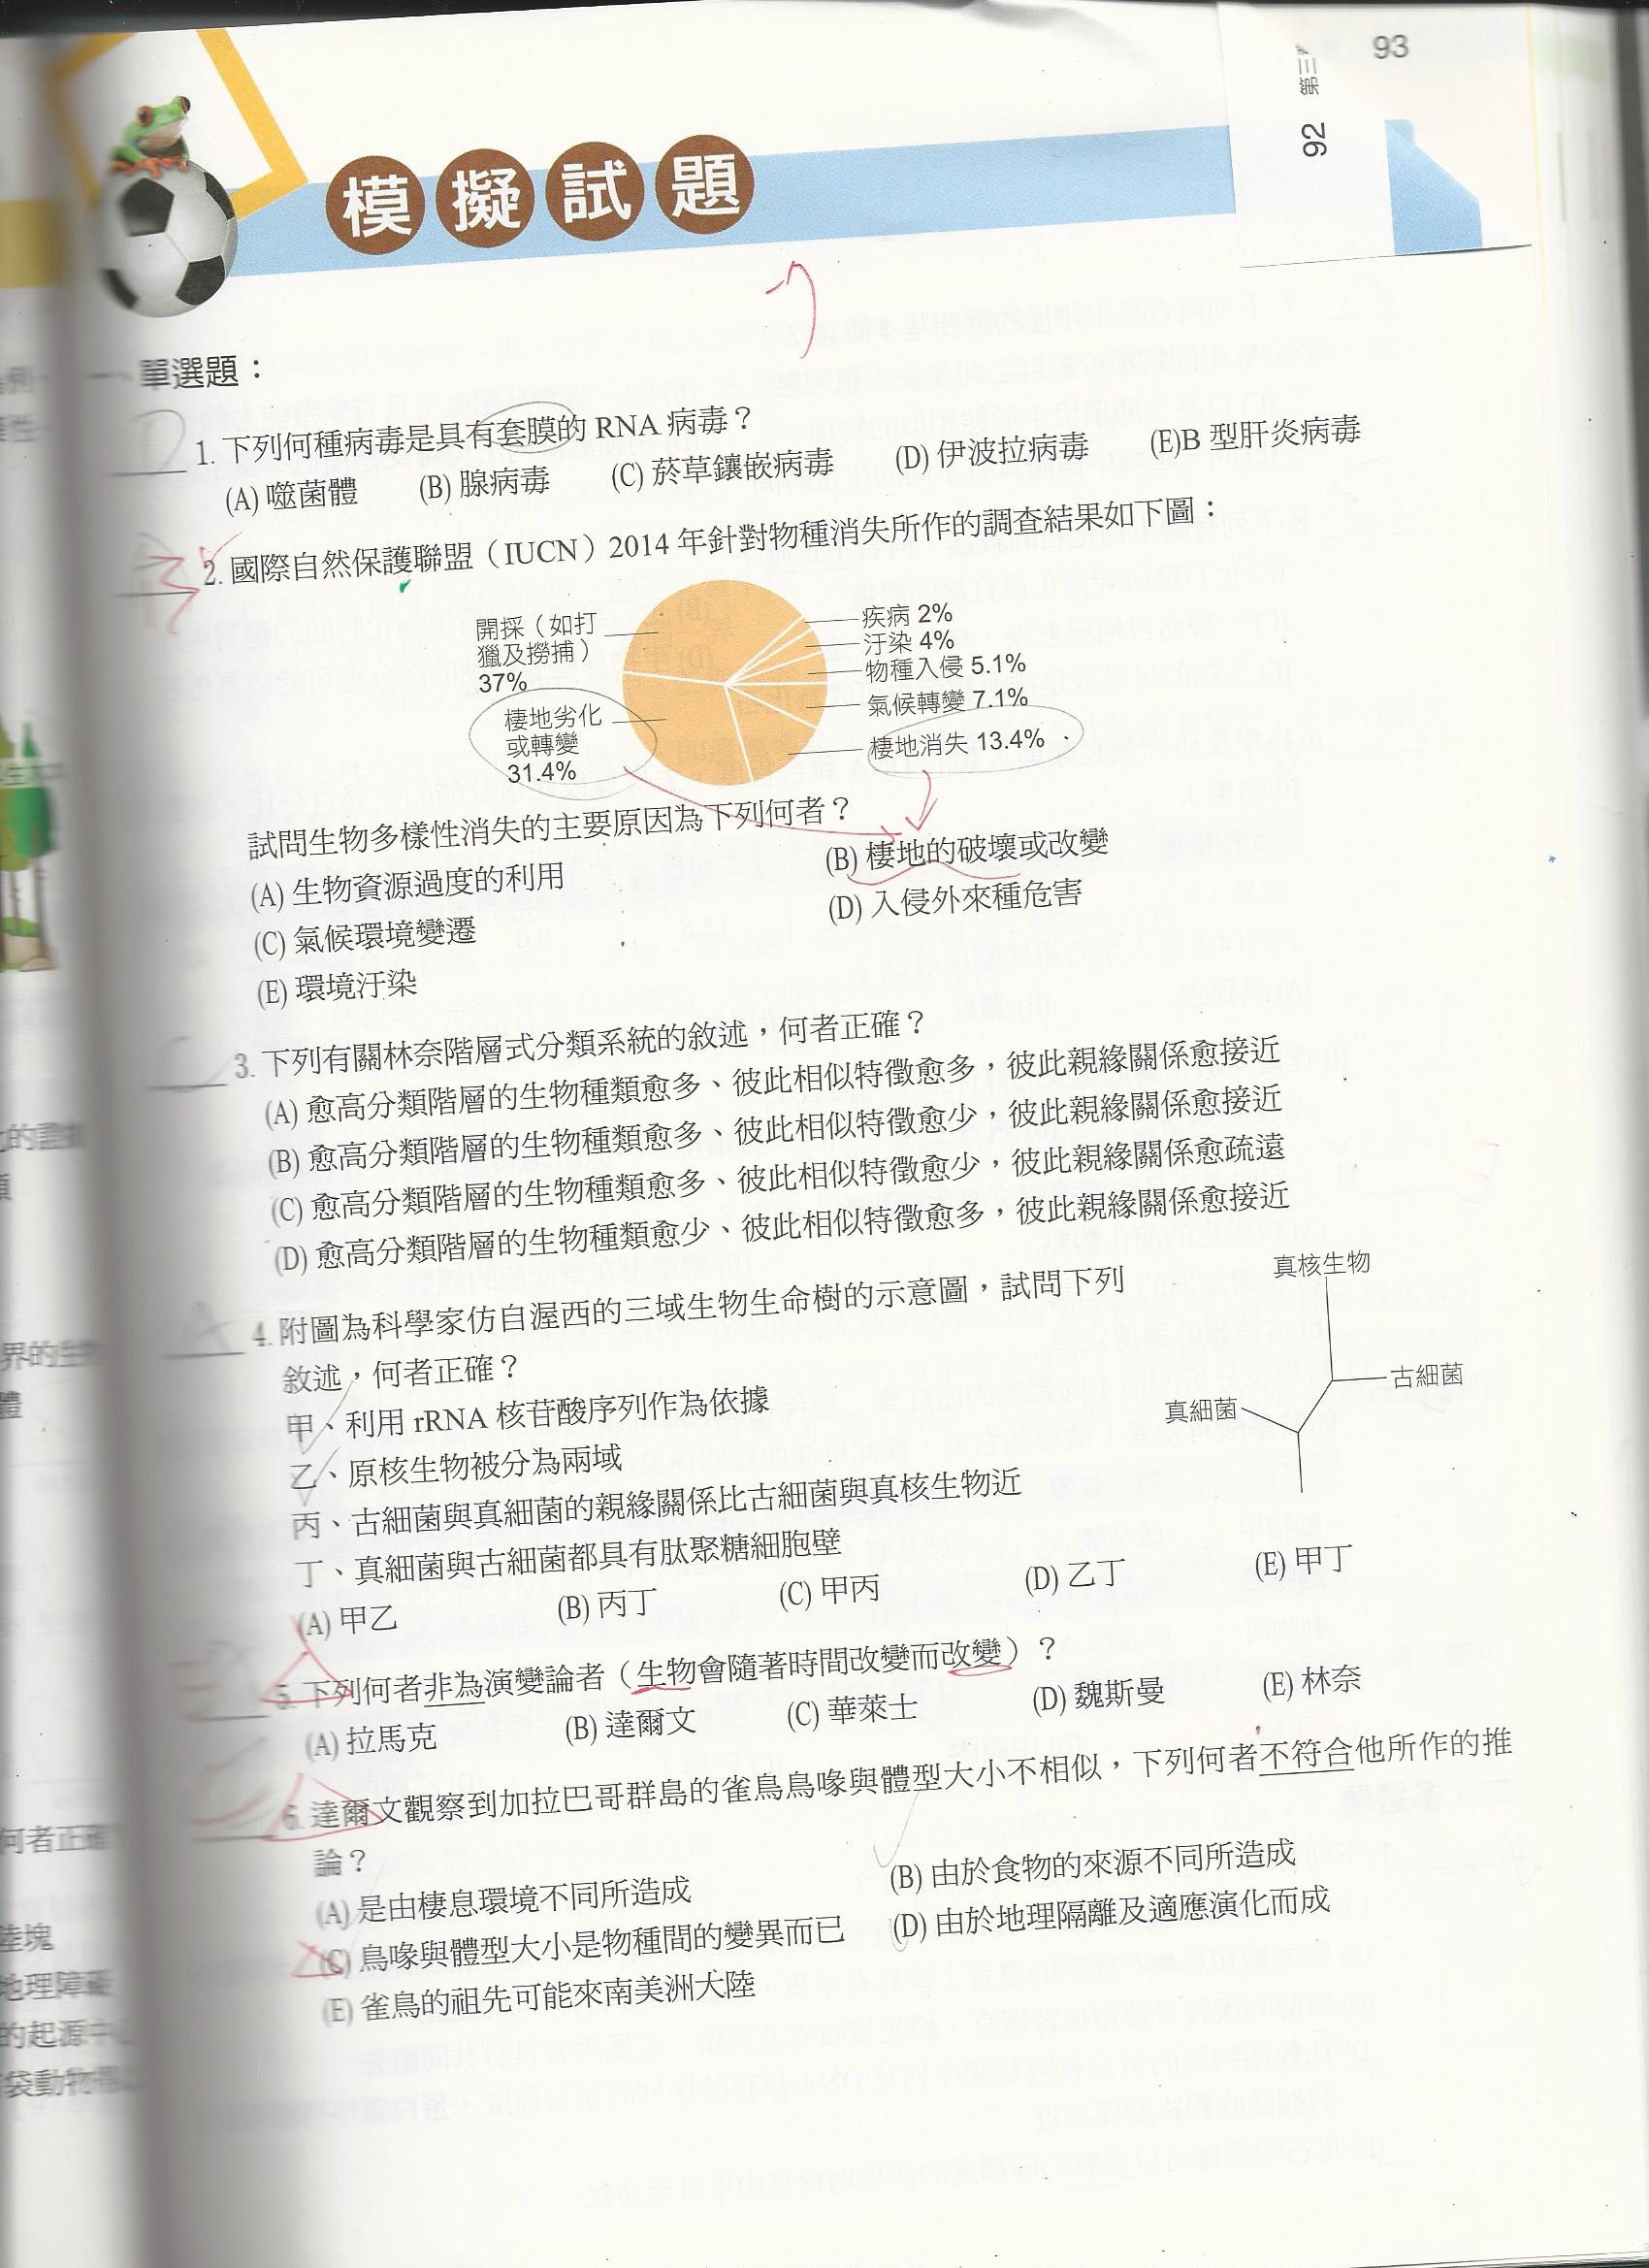 93
92 第三
模擬試題
一、單選題：
D
1. 下列何種病毒是具有套膜的 RNA 病毒？
(A) 噬菌體 (B) 腺病毒 (C) 菸草鑲嵌病毒 (D) 伊波拉病毒 (E)B 型肝炎病毒
2. 國際自然保護聯盟（IUCN）2014 年針對物種消失所作的調查結果如下圖：
開採（如打
獵及撈捕）
37%
棲地劣化
或轉變
31.4%
疾病 2%
汙染 4%
物種入侵 5.1%
氣候轉變 7.1%
棲地消失 13.4%
試問生物多樣性消失的主要原因為下列何者？
(A) 生物資源過度的利用 (B) 棲地的破壞或改變
(C) 氣候環境變遷 (D) 入侵外來種危害
(E) 環境汙染
3. 下列有關林奈階層式分類系統的敘述，何者正確？
(A) 愈高分類階層的生物種類愈多、彼此相似特徵愈多，彼此親緣關係愈接近
(B) 愈高分類階層的生物種類愈多、彼此相似特徵愈少，彼此親緣關係愈接近
(C) 愈高分類階層的生物種類愈多、彼此相似特徵愈少，彼此親緣關係愈疏遠
(D) 愈高分類階層的生物種類愈少、彼此相似特徵愈多，彼此親緣關係愈接近
4. 附圖為科學家仿自渥西的三域生物生命樹的示意圖，試問下列
敘述，何者正確？
甲、利用 rRNA 核苷酸序列作為依據
乙、原核生物被分為兩域
丙、古細菌與真細菌的親緣關係比古細菌與真核生物近
丁、真細菌與古細菌都具有肽聚糖細胞壁
(A) 甲乙 (B) 丙丁 (C) 甲丙 (D) 乙丁 (E) 甲丁
真核生物
古細菌
真細菌
5. 下列何者非為演變論者（生物會隨著時間改變而改變）？
(A) 拉馬克 (B) 達爾文 (C) 華萊士 (D) 魏斯曼 (E) 林奈
6. 達爾文觀察到加拉巴哥群島的雀鳥鳥喙與體型大小不相似，下列何者不符合他所作的推
論？
(A) 是由棲息環境不同所造成 (B) 由於食物的來源不同所造成
(C) 鳥喙與體型大小是物種間的變異而已 (D) 由於地理隔離及適應演化而成
(E) 雀鳥的祖先可能來南美洲大陸
界的生
體
何者正確
陸塊
地理障礙
的起源中
袋動物